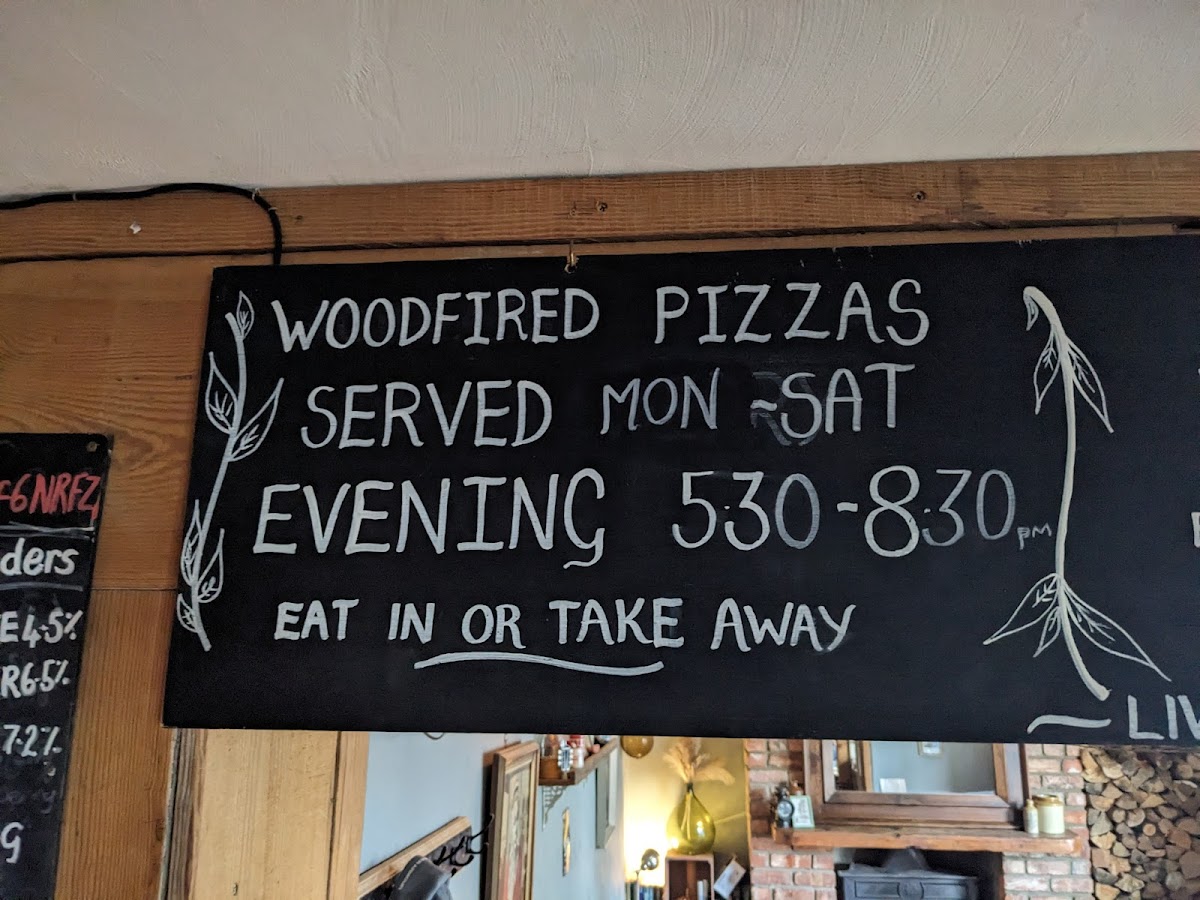 WOODFIRED PIZZAS
SERVED MON ~SAT
EVENING 5:30 - 8:30 pm
EAT IN OR TAKE AWAY
~ LIV
F6NRFZ
ders
E 4.5%
R 6.5%
7.2%
g